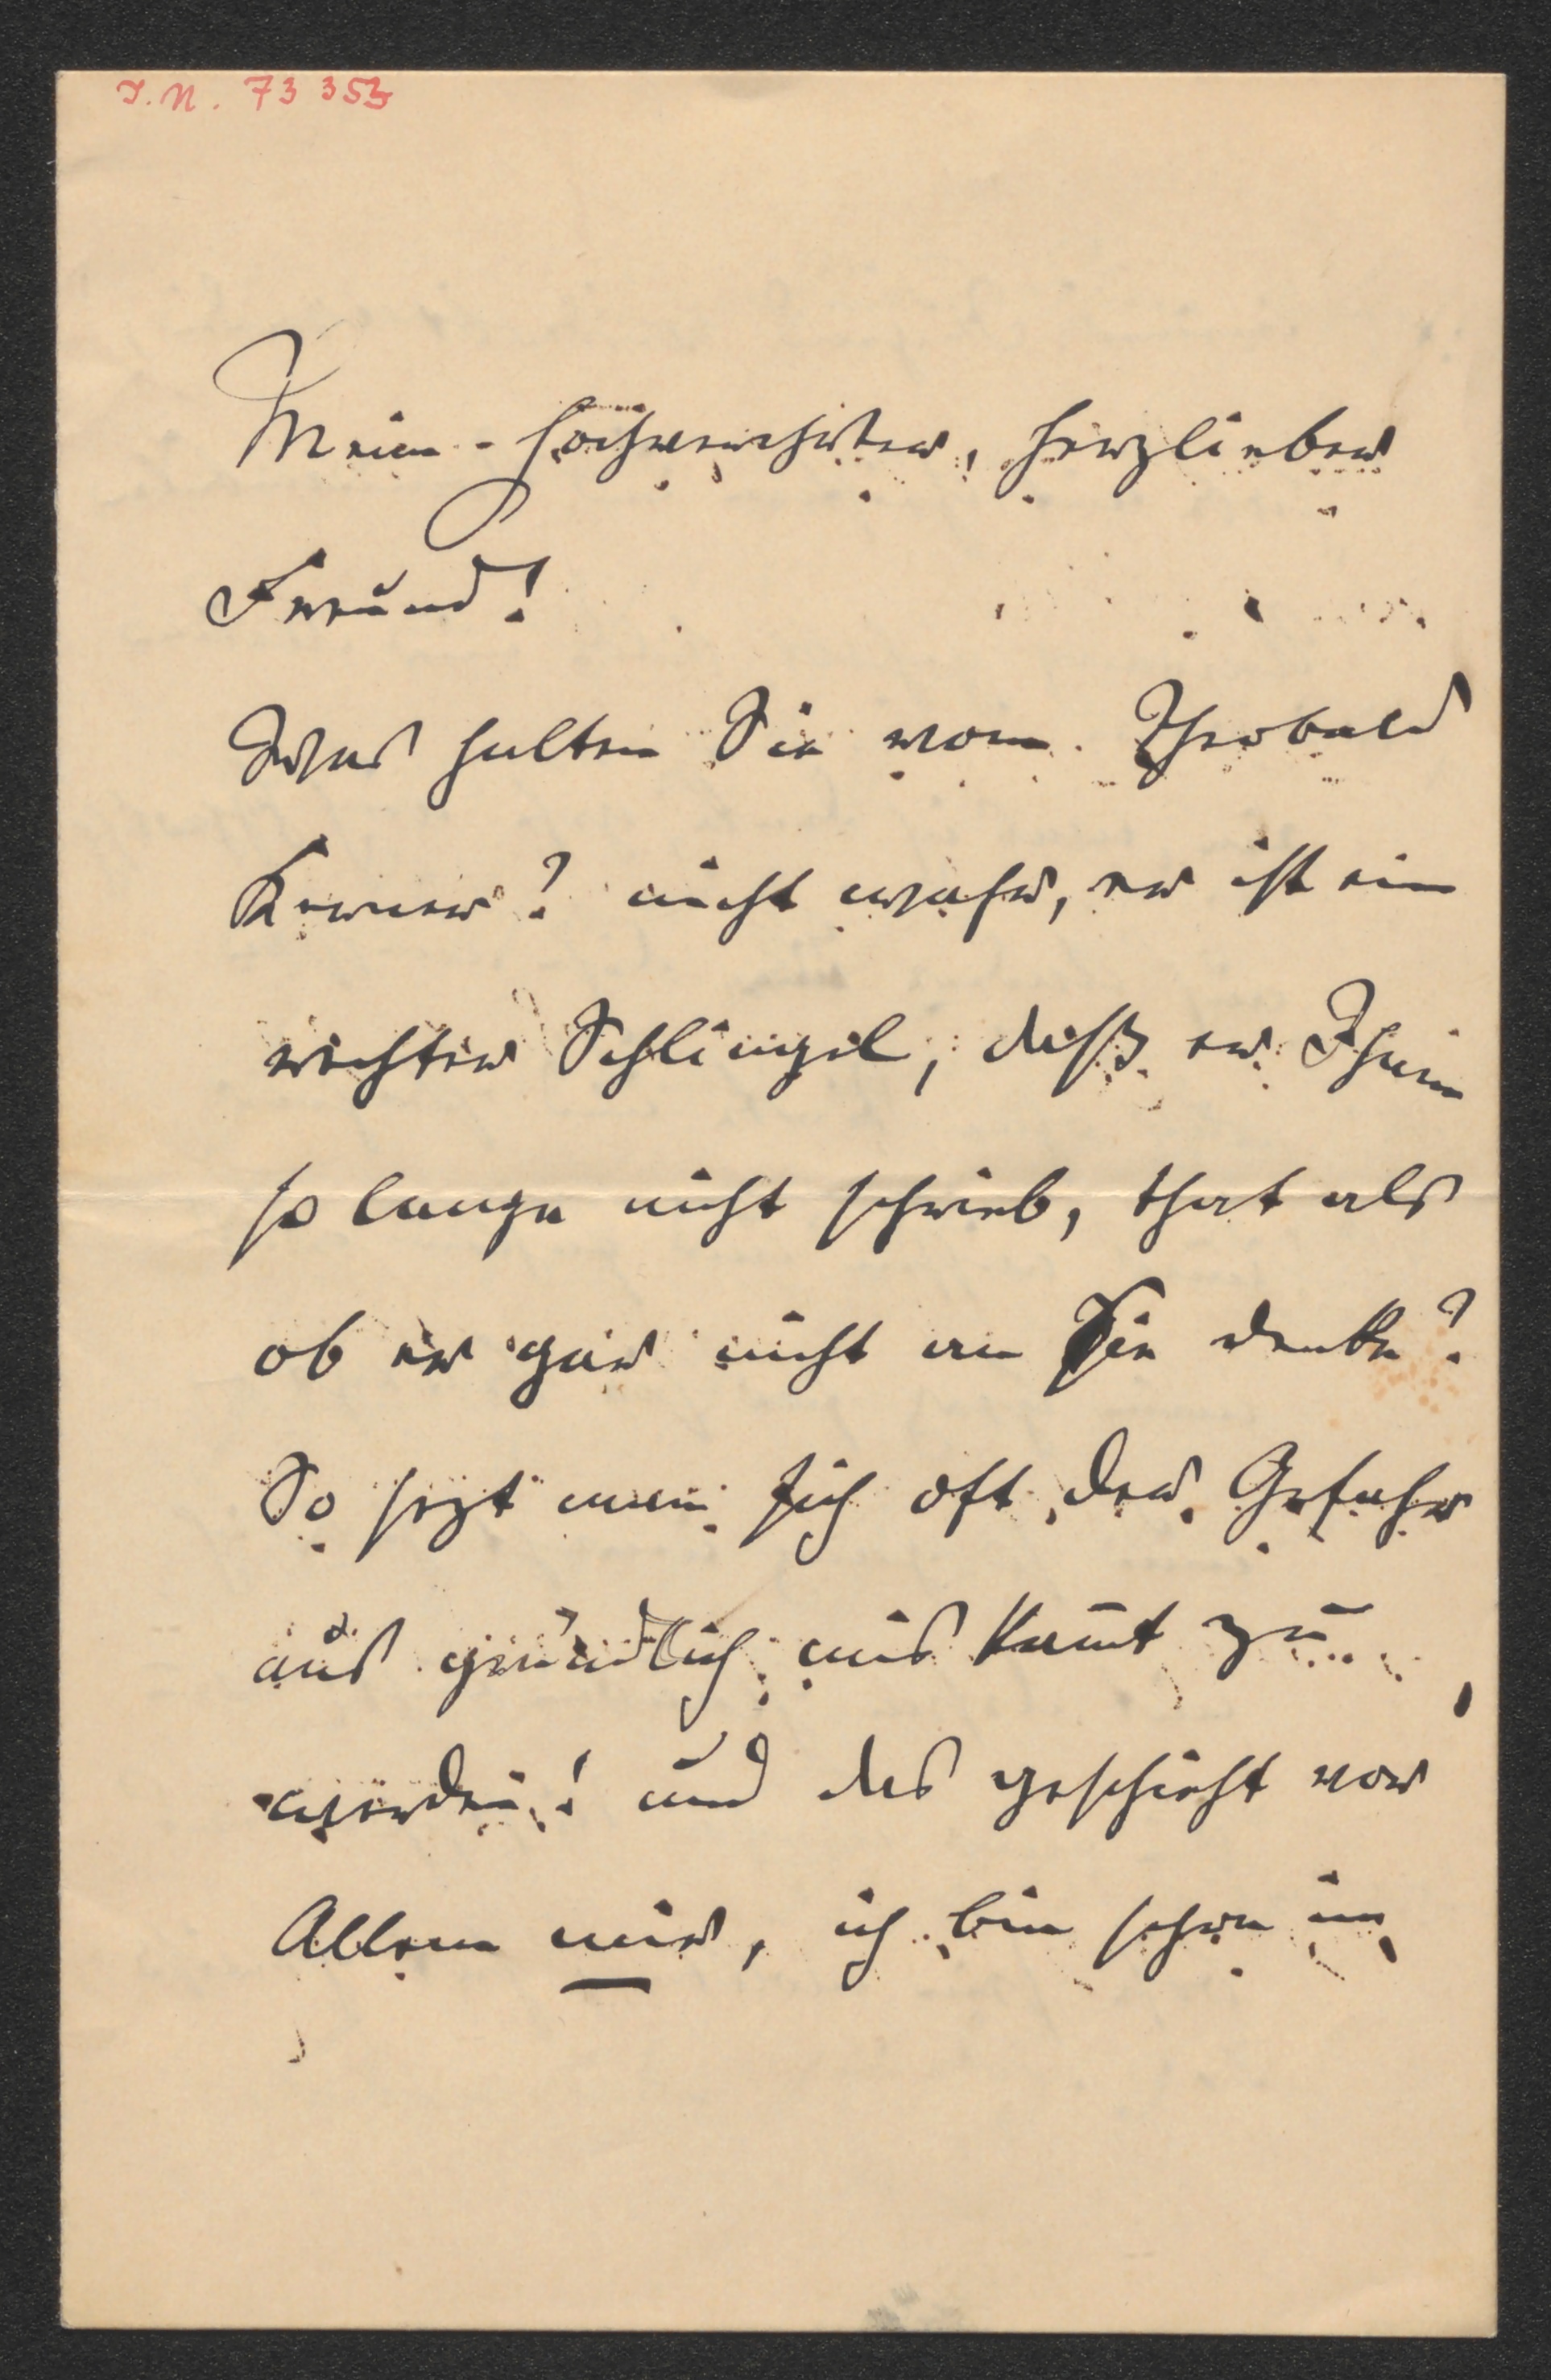 I.N. 73353
Mein hochverehrter, herzlieber
Freund!
Was halten Sie vom Theobald
Kerner? nicht wahr, er ist ein
rechter Schlingel, daß er Ihnen
so lange nicht schrieb, that als
ob er gar nicht an Sie denke?
So sezt man sich oft der Gefahr
aus gründlich miskannt zu
werden! und das geschieht vor
Allem mir, ich bin schon im